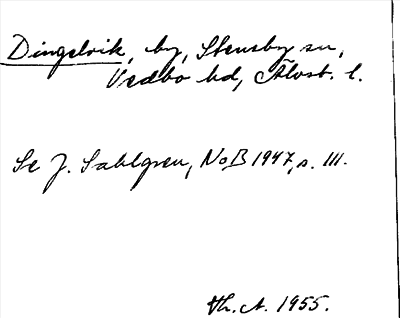 Dingelvik, by, Stensby sn,
Vedbo hd, Älvsb. l.
Se J. Sahlgren, NoB 1947, s. 111.
Th. A. 1955.